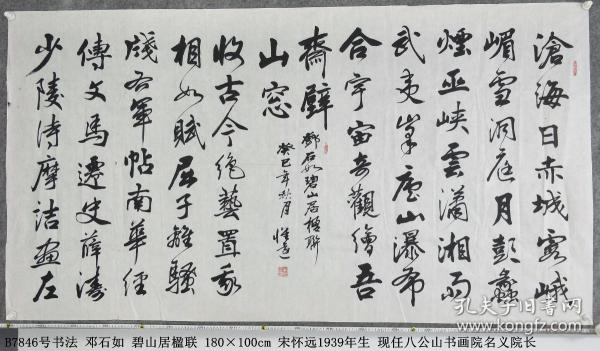 滄海日赤城霞峨
嵋雪洞庭月彭蠡
煙巫峽雲瀟湘雨
武夷峯廬山瀑布
合宇宙奇觀繪吾
齋壁
少陵诗摩詰畫左
傳文馬遷史薛濤
牋右軍帖南華經
相如賦屈子離騷
收古今絶藝置我
山窓
鄧石如碧山居楹聯
癸巳年秋月 懷遠
孔夫子旧书网
B7846号书法 邓石如 碧山居楹联 180×100cm 宋怀远1939年生 现任八公山书画院名义院长